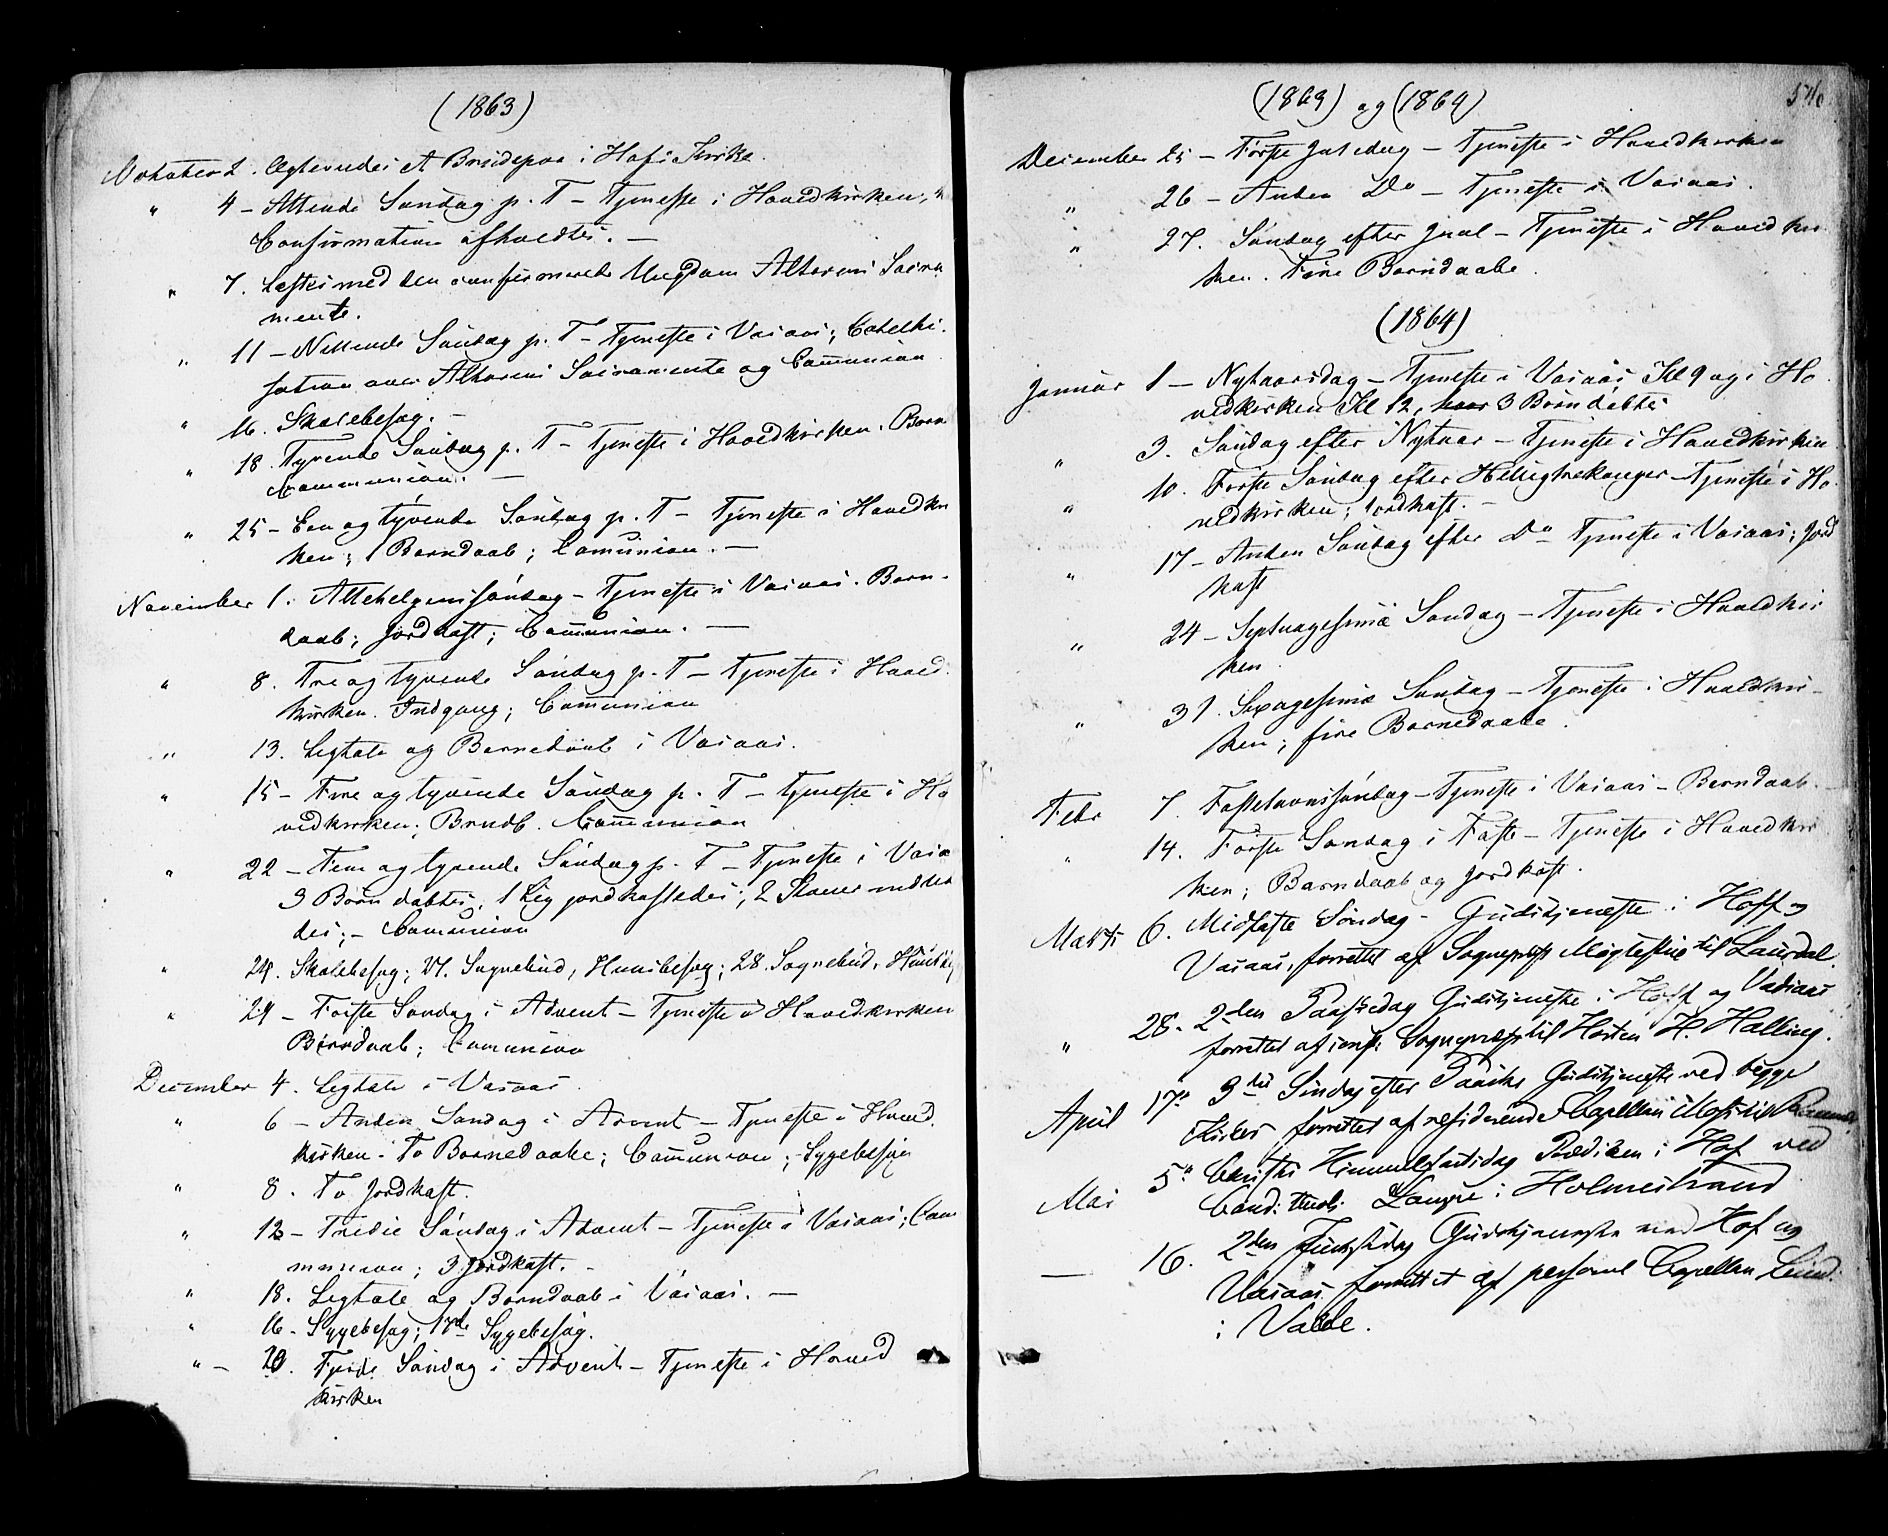 (1863)
October 2. Ægteviedes et Brudepar i Hofs Kirke.
" 4 – Attende Søndag p. T – Tjeneste i Hovedkirken,
Confirmation afholdtes. –
" 7. Læstes med den confirmerede Ungdom Alterens Sacra
mente.
" 11 – Nittende Søndag p. T – Tjeneste i Vasaas; Catechi-
sation over Alterens Sacramente og Communion
" 16. Skolebesøg. –
" 18. Tyvende Søndag p. T – Tjeneste i Hovedkirken. Barn
Communion. –
" 25 – Een og tyvende Søndag p. T – Tjeneste i Hovedkir
ken; 1 Barndaab; Communion. –
November 1. Allehelgenssøndag – Tjeneste i Vasaas. Barn-
daab; Jordkast; Communion. –
" 8. Tre og tyvende Søndag p. T – Tjeneste i Hoved-
kirken. Indgang; Communion
" 13. Ligtale og Barnedaab i Vasaas.
" 15 – Fire og tyvende Søndag p. T – Tjeneste i Ho
vedkirken; Brudb. Communion
" 22 – Fem og tyvende Søndag p. T – Tjeneste i Vasa
3 Børn døbtes, 1 Lig jordkastedes; 2
des; – Communion
" 24. Skolebesøg; 27. Sognebud, Huusbesøg; 28. Sognebud,
" 29 – Første Søndag i Advent – Tjeneste i Hovedkirken
Barndaab; Communion
December 4. Ligtale i Vasaas.
" 6 – Anden Søndag i Advent – Tjeneste i Hoved.
kirken – To Barnedaabe; Communion; Sygebesøg
" 8. To Jordkast.
" 13 – Tredie Søndag i Advent – Tjeneste i Vasaas; Com
munion; 3 Jordkast. –
" 18. Ligtale og Barndaab i Vasaas. –
" 16 – Sygebesøg; 17de Sygebesøg.
" – 20. Fjerde Søndag i Advent – Tjeneste i Hoved
kirken
(1863) og (1864)
December 25 – Første Juledag – Tjeneste i Hovedkirken
" 26 – Anden Do – Tjeneste i Vasaas.
" 27. Søndag efter Juul – Tjeneste i Hovedkir
ken. Fire Barndaabe.
(1864)
Januar 1 – Nytaarsdag – Tjeneste i Vasaas Kl 9 og i Ho
vedkirken Kl 12, hvor 3 Børn døbtes
" 3. Søndag efter Nytaar – Tjeneste i Hovedkirken
" 10. Første Søndag efter Helligtrekonger – Tjeneste i Ho-
vedkirken; Jordkast. –
" 17 – Anden Søndag efter Do Tjeneste i Vasaas; Jord
kast
" 24 – Septuagesimæ Søndag – Tjeneste i Hovedkir
ken.
" 31. Sexagesimæ Søndag – Tjeneste i Hovedkir-
ken; fire Barnedaabe.
Febr 7. Fastelavnssøndag – Tjeneste i Vasaas – Barndaab.
" 14. Første Søndag i Faste – Tjeneste i Hovedkir
ken; Barndaab og Jordkast.
Marts 6. Midfaste Søndag – Gudstjeneste i Hoff og
Vasaas, forrettet af Sognepræst til Laurdal.
" 28. 2den Paaskedag Gudstjeneste i Hoff og Vasaas
forrettet af const. Sognepræst til Horten H. Halling.
April 17. 3die Søndag efter Paaske Gudstjeneste ved begge
Kirker, forrettet af residerende Capellan
Mai 5. Christi Himmelfartsdag Prædiken i Hof ved
Cand: theol: Lange i Holmestrand
— 16. 2den Pintsedag Gudstjeneste ved Hof og
Vasaas forrettet af personel Capellan Lund
i Vaale.